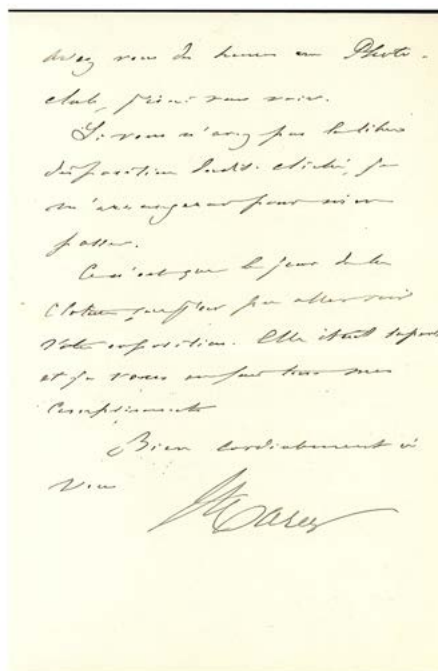 avez vous des heures au Photo-
club, j'irai vous voir.
Si vous n'avez pas la libre
disposition dudit cliché, je
m'arrangerai pour m'en
passer.
Ce n'est que le jour de la
clôture que j'ai pu aller voir
votre exposition. Elle était superbe
et je vous en fais tous mes
compliments
Bien cordialement à
vous
Marey